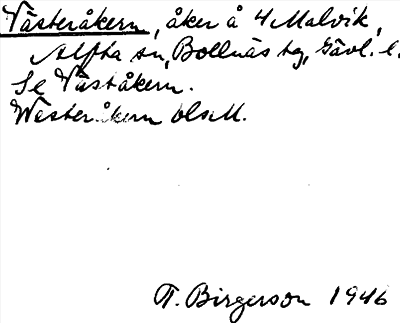 Västeråkern, åker å 4 Malvik,
Alfta sn, Bollnäs tg, Gävl. l.
Se Väståkern.
Westeråkern olsM.
T. Birgerson 1946